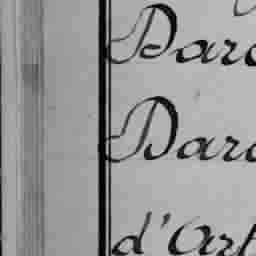 Darc
Darc
d'Art